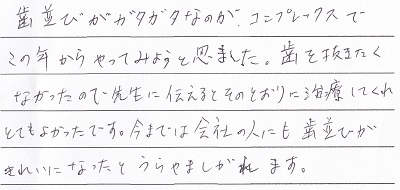 歯並びがガタガタなのが、コンプレックスで
この年からやってみようと思ました。歯を抜きたく
なかったので先生に伝えるとそのとおりに治療してくれ
とてもよかったです。今までは会社の人にも歯並びが
きれいになったとうらやましがれます。